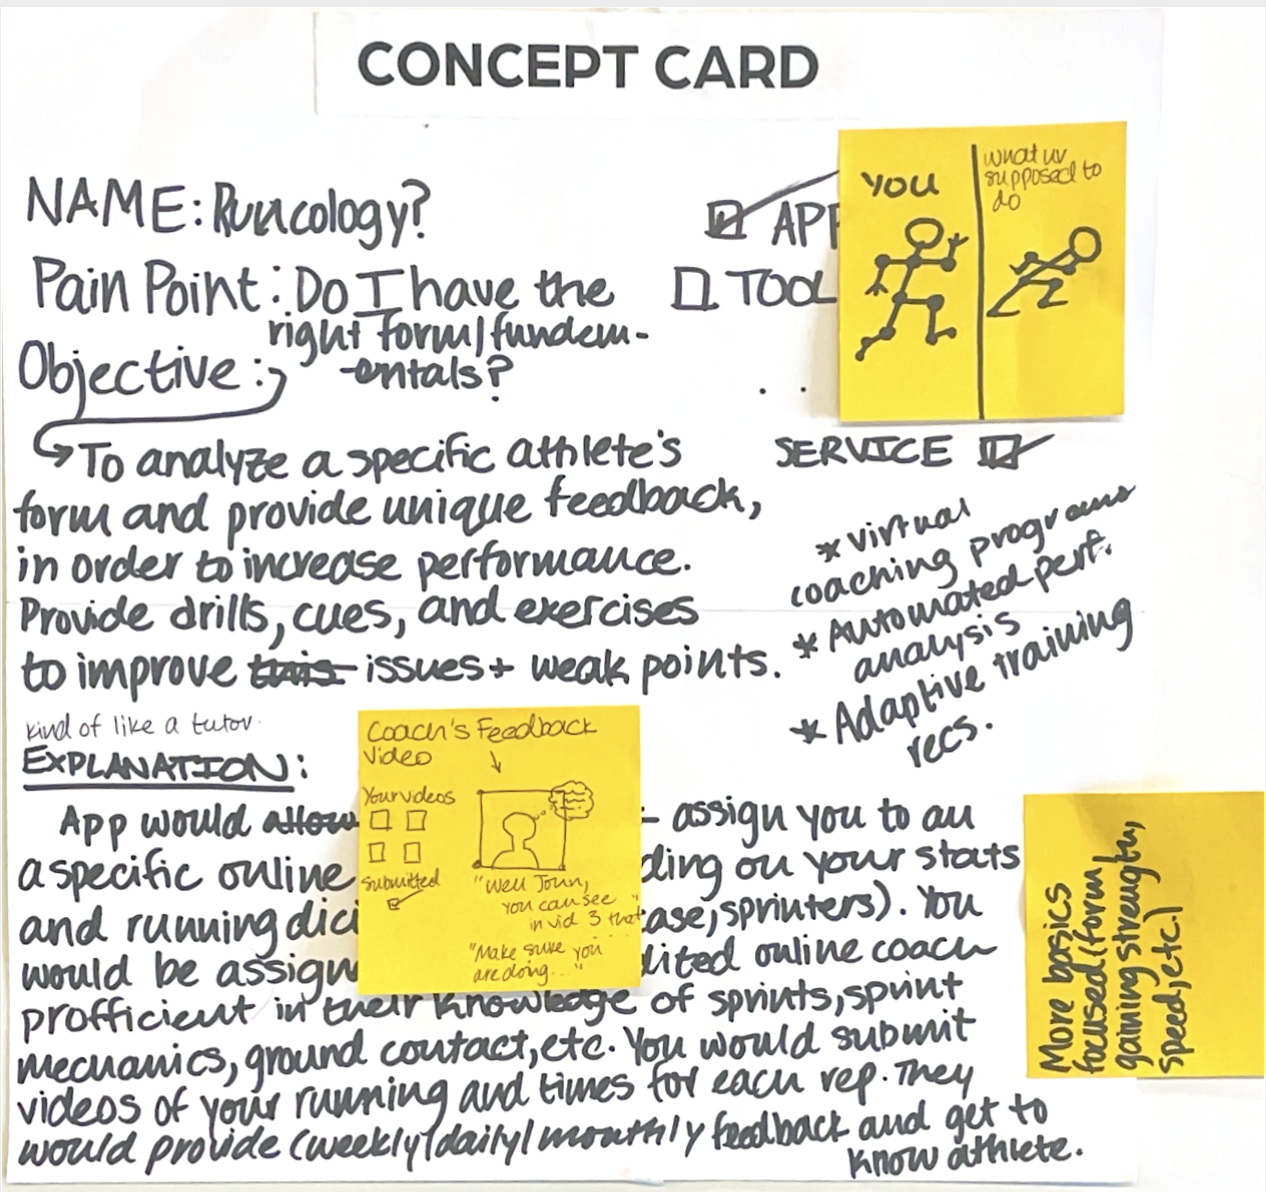 CONCEPT CARD
NAME: Runcology?
APP
TOOL
Pain Point: Do I have the
right form/fundem-
entals?
Objective:
YOU
what ur
supposed to
do
To analyze a specific athlete's
form and provide unique feedback,
in order to increase performance.
Provide drills, cues, and exercises
to improve this issues + weak points.
SERVICE
* Virtual
coaching programs
* Automated perf.
analysis
* Adaptive training
recs.
kind of like a tutor.
EXPLANATION:
App would allow - assign you to an
a specific online ding on your stats
and running dici ase, sprinters). You
would be assign dited online coach
profficient in their knowledge of sprints, sprint
mechanics, ground contact, etc. You would submit
videos of your running and times for each rep. They
would provide (weekly/daily/monthly feedback and get to
know athlete.
Coach's Feedback
Video
Your videos
submitted
"Well John,
you can see
in vid 3 that"
"Make sure you
are doing..."
More basics
focused (form,
gaining strength,
speed, etc.)